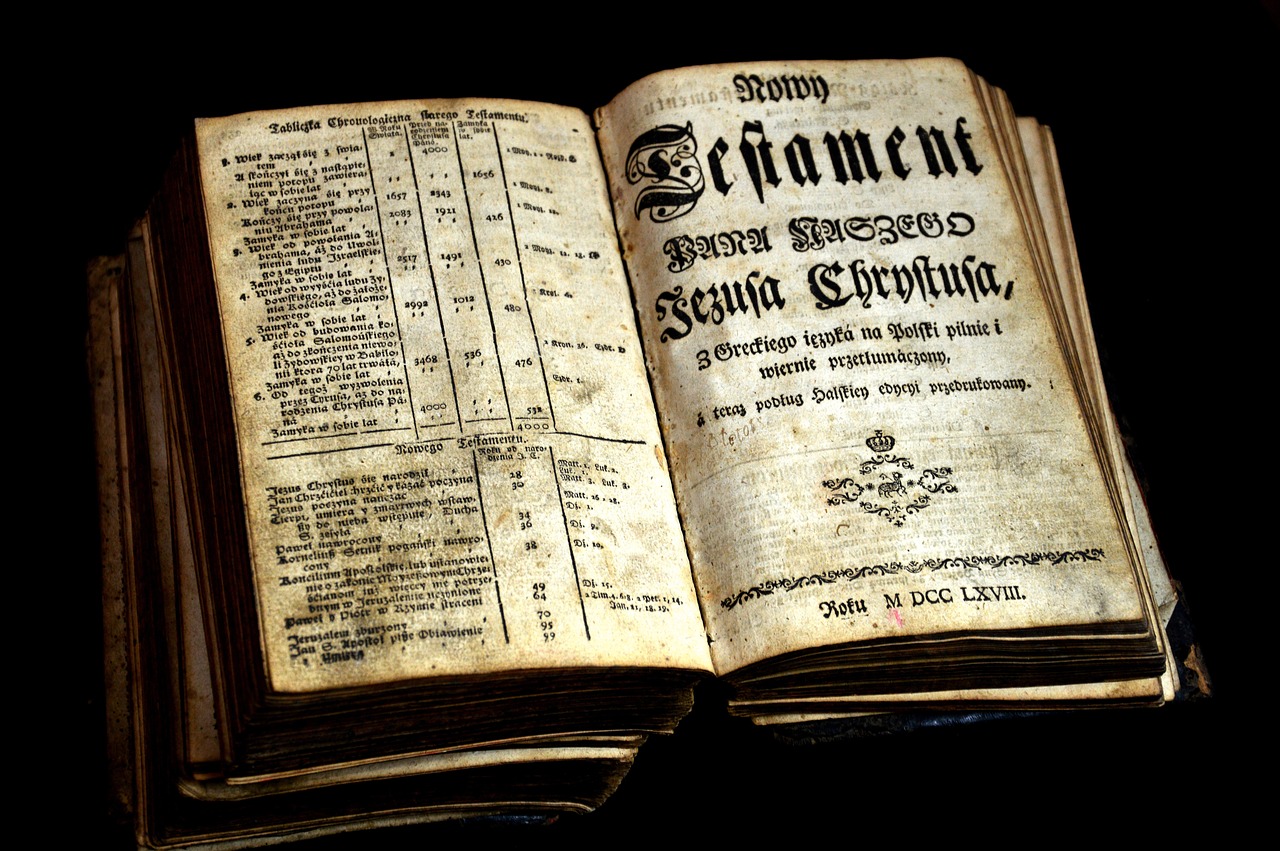 Tabliczka Chronologiczna starego Testamentu.
W Roku Świata. Przed na- rodzeniem Chrystusa Pána. Zamyka w sobie lat.
1. Wiek zaczął się z świa- 1 4000 1 Moj. 1
tem
A skończył się z nastąpie-
niem potopu zawiera- 1656
iąc w sobie lat
2. Wiek zaczyna się przy 1657 2343
końcu potopu
Kończy się przy powoła- 2083 1921
niu Abrahama
Zamyka w sobie lat 426
3. Wiek od powołania A-
brahama, aż do Uwol-
nienia ludu Izraelskie- 2517 1491
go z Egiptu
Zamyka w sobie lat 430
4. Wiek od wyyścia ludu Ży-
dowskiego, aż do założe-
nia Kościoła Salomo- 2992 1012
nowego
Zamyka w sobie lat 480
5. Wiek od budowania ko-
ścioła Salomońskiego
aż do zkończenia niewo-
li Żydowskiey w Babilo-
nii ktora 70 lat trwała, 3468 536
Zamyka w sobie lat 476
6. Od tegoż wyzwolenia Ezdr. 1.
przez Cyrusa, aż do na-
rodzenia Chrystusa Pá- 4000
na
Zamyka w sobie lat 532
4000
Nowego Testamentu.
Roku od naro-
dzenia J. C.
Jezus Chrystus się narodził Matt. 1. Luk. 2.
Jan Chrzciciel chrzcić y kazać poczyna 28
Jezus poczyna nauczać 30
Cierpi, umiera y zmartwych wstaw- Matt. 26 - 28.
szy do nieba wstępuie, Ducha Dz. 1.
S. zsyła 34
Paweł nawrocony 36 Dz. 9.
Korneliusz Setnik pogański nawro- 38 Dz. 10.
cony
Koncilium Apostolskie, lub ustanowie-
nie o zakonie Moyżeszowym Chrze-
ścianom iuż więcey nie potrze-
bnym w Jeruzalemie uczynione 49 Dz. 15.
Paweł y Piotr w Rzymie straceni 64 2 Tim. 4. 6. 8. 2 Petr. 1, 14.
Jan. 21, 18. 19.
Jeruzalem zburzony 70
Jan S. Apostoł pisze Obiawienie 95
y umiera 99
Nowy
Testament
PANA NASZEGO
Jezusa Chrystusa,
Z Greckiego ięzyká na Polski pilnie i
wiernie przetłumáczony,
á teraz podług Halskiey edycyi przedrukowany.
Roku M DCC LXVIII.